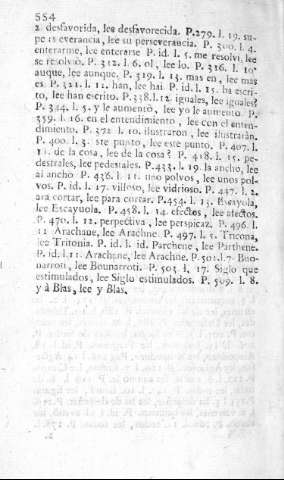 554
2. desfavorida, lee desfavorecida. P.279. l. 19. su-
pe is everancia, lee su perseverancia. P. 300. l. 4.
enterarme, lee enterarse P. id. l. 5. me resolvi, lee
se resolvió. P. 312. l. 6. ol, lee lo. P. 316. l. 10.
auque, lee aunque. P. 319. l. 13. mas en, lee mas
es P. 321. l. 12. han, lee hai. P. id. l. 15. ha escri-
to, lee han escrito. P. 338. l. 12. iguales, lee iguales?
P. 344. l. 5. y le aumentò, lee yo le aumento. P.
359. l. 16. en el entendimiento, lee con el enten-
dimiento. P. 372 l. 10. ilustraron, lee ilustrarán.
P. 400. l. 3. ste punto, lee este punto. P. 407. l.
11. de la cosa, lee de la cosa? P. 418. l. 15. pe-
destrales, lee pedestales. P.433. l. 19. la ancho, lee
al ancho P. 436. l. 11. uno polvos, lee unos pol-
vos. P. id. l. 17. villoso, lee vidrioso. P. 447. l. 2.
ara cortar, lee para cortar. P.454. l. 13. Escayola,
lee Escayuola. P. 458. l. 14. efectos, lee afectos.
P. 470. l. 12. perpectiva, lee perspicaz. P. 496. l.
12 Arachaue, lee Arachne. P. 497. l. 1. Tricona,
lee Tritonia. P. id. l. id. Parchene, lee Parthene.
P. id. l.11. Arachane, lee Arachne. P. 501. l.7. Buo-
narroti, lee Bounarroti. P. 503. l. 17. Siglo que
estimulados, lee Siglo estimulados. P. 509. l. 8.
y à Blas, lee y Blas.